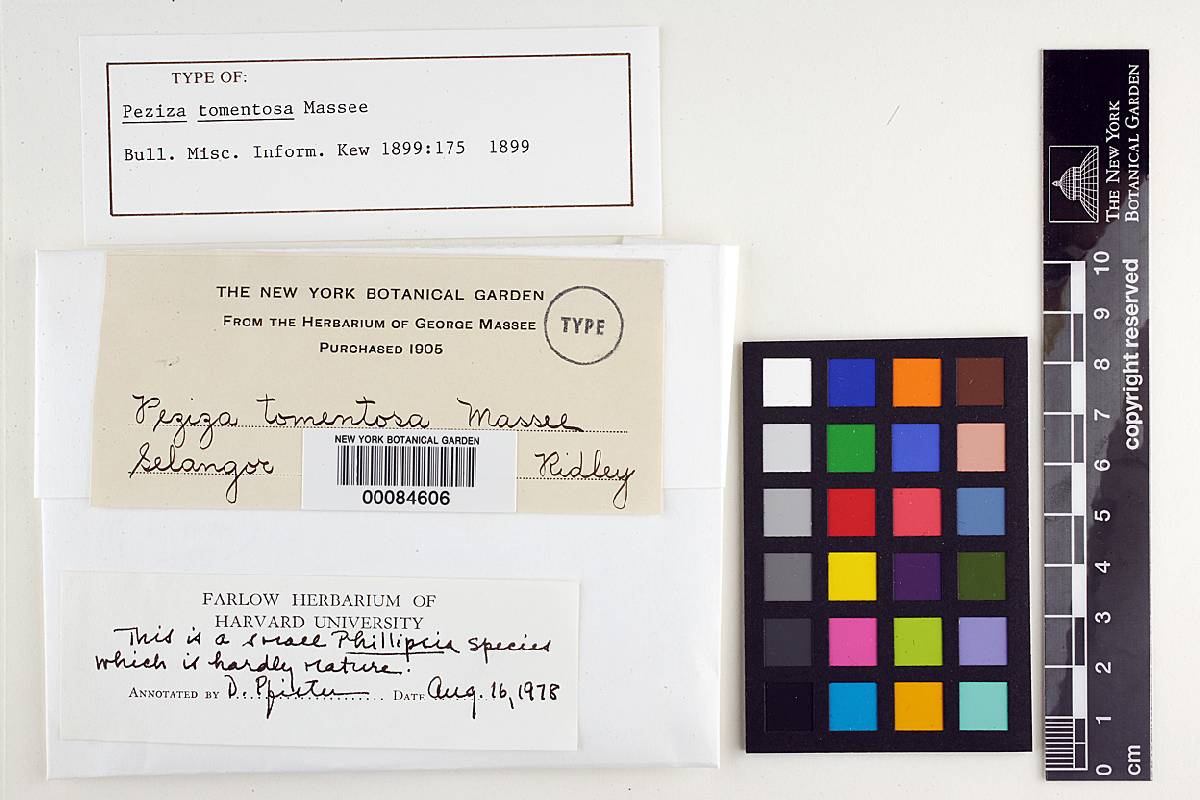 TYPE OF:
Peziza tomentosa Massee
Bull. Misc. Inform. Kew 1899:175 1899
THE NEW YORK BOTANICAL GARDEN
FROM THE HERBARIUM OF GEORGE MASSEE
PURCHASED 1905
TYPE
Peziza tomentosa Massee
Selangor Ridley
NEW YORK BOTANICAL GARDEN
00084606
FARLOW HERBARIUM OF
HARVARD UNIVERSITY
This is a small Phillipsia species
which is hardly mature!
ANNOTATED BY D. Pfister DATE Aug. 16, 1978
THE NEW YORK
BOTANICAL GARDEN
copyright reserved
10
9
8
7
6
5
4
3
2
1
0
cm